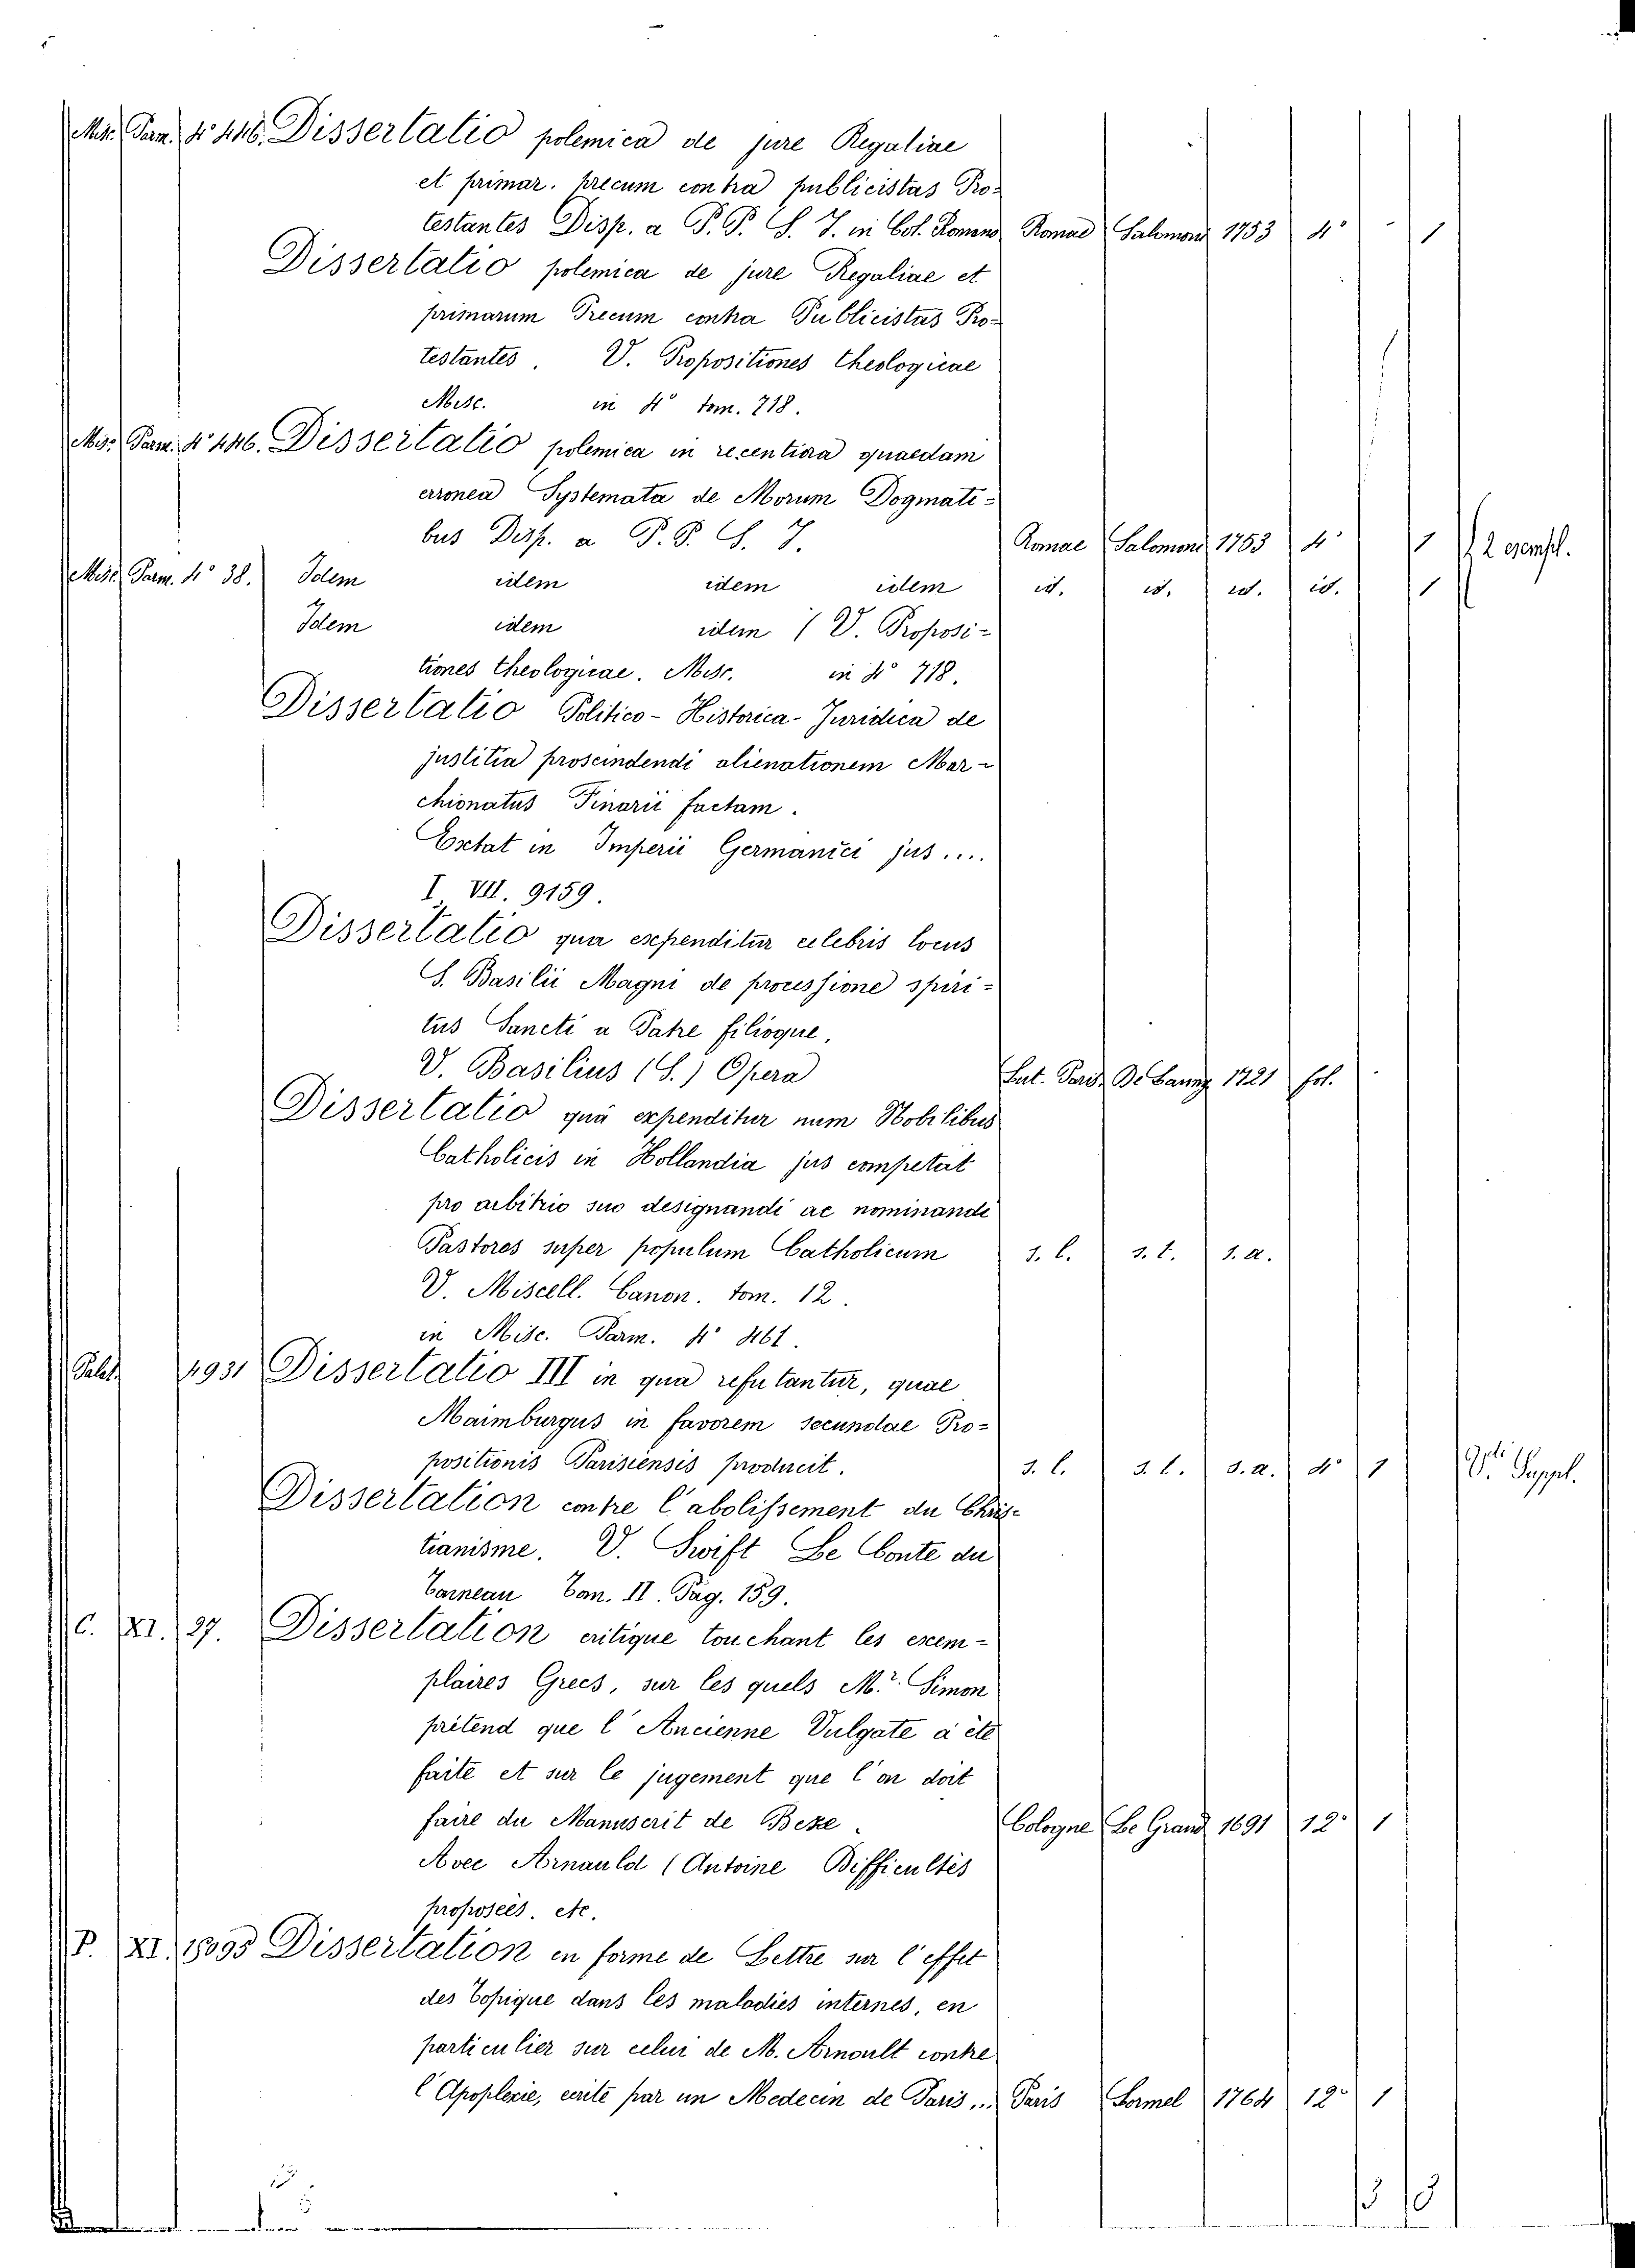 Misc. Parm. 4° 446. Dissertatio polemica de jure Regaliae
et primar. precum contra publicistas Pro-
testantes Disp. a P. P. S. J. in Col. Romano Romae Salomoni 1753 4° 1
Dissertatio polemica de jure Regaliae et
primarum Precum contra Publicistas Pro-
testantes. V. Propositiones theologicae
Misc. in 4° tom. 718.
Misc. Parm. 4° 446. Dissertatio polemica in recentiora quaedam
erronea Systemata de Morum Dogmati-
bus Disp. a P. P. S. J. Romae Salomoni 1753 4° 1 2 esempl.
Misc. Parm. 4° 38. Idem idem idem idem id. id. id. id. 1
Idem idem idem / V. Proposi-
tiones theologicae. Misc. in 4° 718.
Dissertatio Politico-Historica-Juridica de
justitia proscindendi alienationem Mar-
chionatus Finarii factam.
Exstat in Imperii Germanici jus....
I VII. 9159.
Dissertatio qua expenditur celebris locus
S. Basilii Magni de processione spiri-
tus Sancti a Patre filioque.
V. Basilius (S.) Opera Lut. Paris. 1721 fol.
Dissertatio quâ expenditur num Nobilibus
Catholicis in Hollandia jus competat
pro arbitrio suo designandi ac nominandi
Pastores super populum Catholicum s. l. s. t. s. a.
V. Miscell. Canon. tom. 12.
in Misc. Parm. 4° 461.
Palat. 4931 Dissertatio III in qua refutantur, quae
Maimburgus in favorem secundae Pro-
positionis Parisiensis produxit. s. l. s. t. s. a. 4° 1 V. Suppl.
Dissertation contre l'abolissement du Chris-
tianisme. V. Swift Le Conte du
Tonneau Tom. II. Pag. 159.
C. XI. 27. Dissertation critique touchant les exem-
plaires Grecs, sur les quels M.r Simon
prétend que l'Ancienne Vulgate a été
faite et sur le jugement que l'on doit
faire du Manuscrit de Beze. Cologne Le Grand 1691 12° 1
Avec Arnauld (Antoine Difficultés
proposées. etc.
P. XI. Dissertation en forme de Lettre sur l'effet
des Topique dans les maladies internes, en
particulier sur celui de M. Arnoult contre
l'Apoplexie, ecrite par un Medecin de Paris... Paris Lormel 1764 12° 1